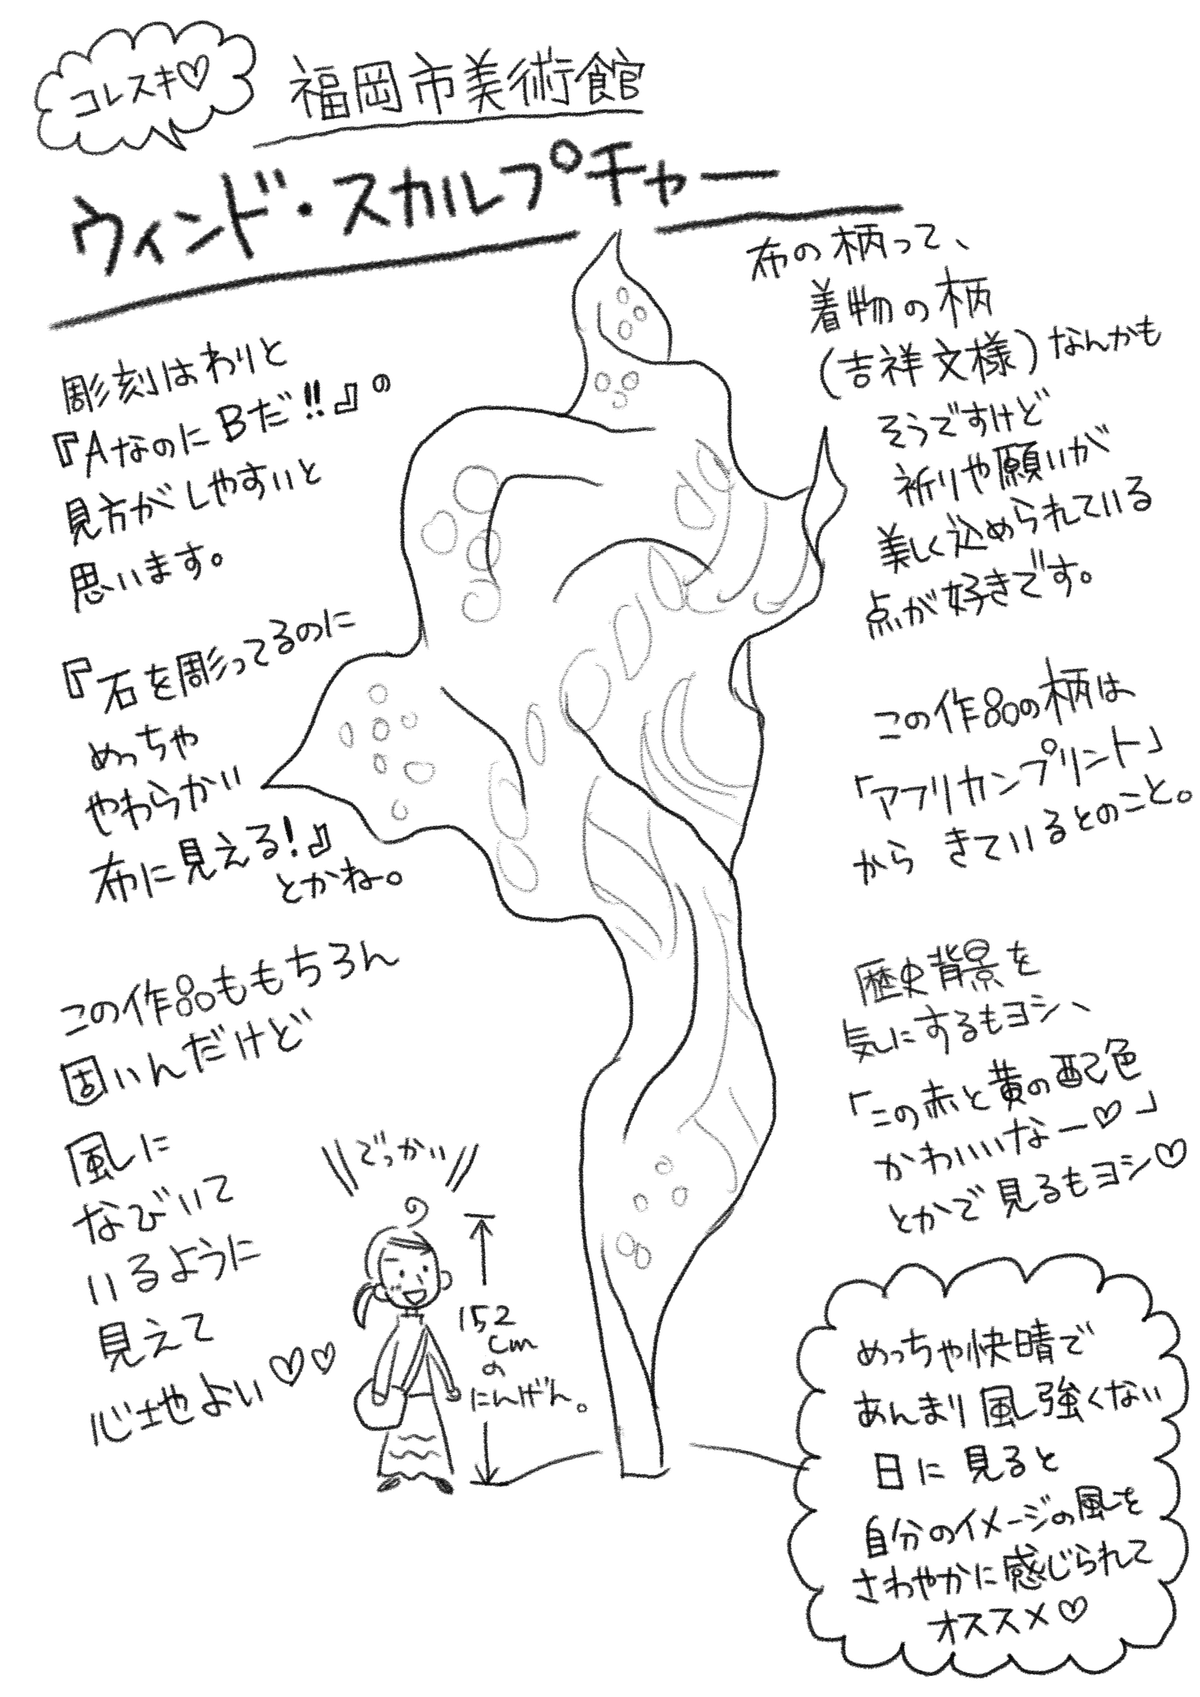 コレスキ♡
福岡市美術館
ウィンド・スカルプチャー
彫刻はわりと
『AなのにBだ!!』の
見方がしやすいと
思います。
『石を彫ってるのに
めっちゃ
やわらかい
布に見える!』
とかね。
この作品ももちろん
固いんだけど
風に
なびいて
いるように
見えて
心地よい♡♡
でっかい
152
cm
の
にんげん。
布の柄って、
着物の柄
(吉祥文様)なんかも
そうですけど
祈りや願いが
美しく込められている
点が好きです。
この作品の柄は
「アフリカンプリント」
からきているとのこと。
歴史背景を
気にするもヨシ、
「この赤と黄の配色
かわいいなー♡」
とかで見るもヨシ♡
めっちゃ快晴で
あんまり風強くない
日に見ると
自分のイメージの風を
さわやかに感じられて
オススメ♡